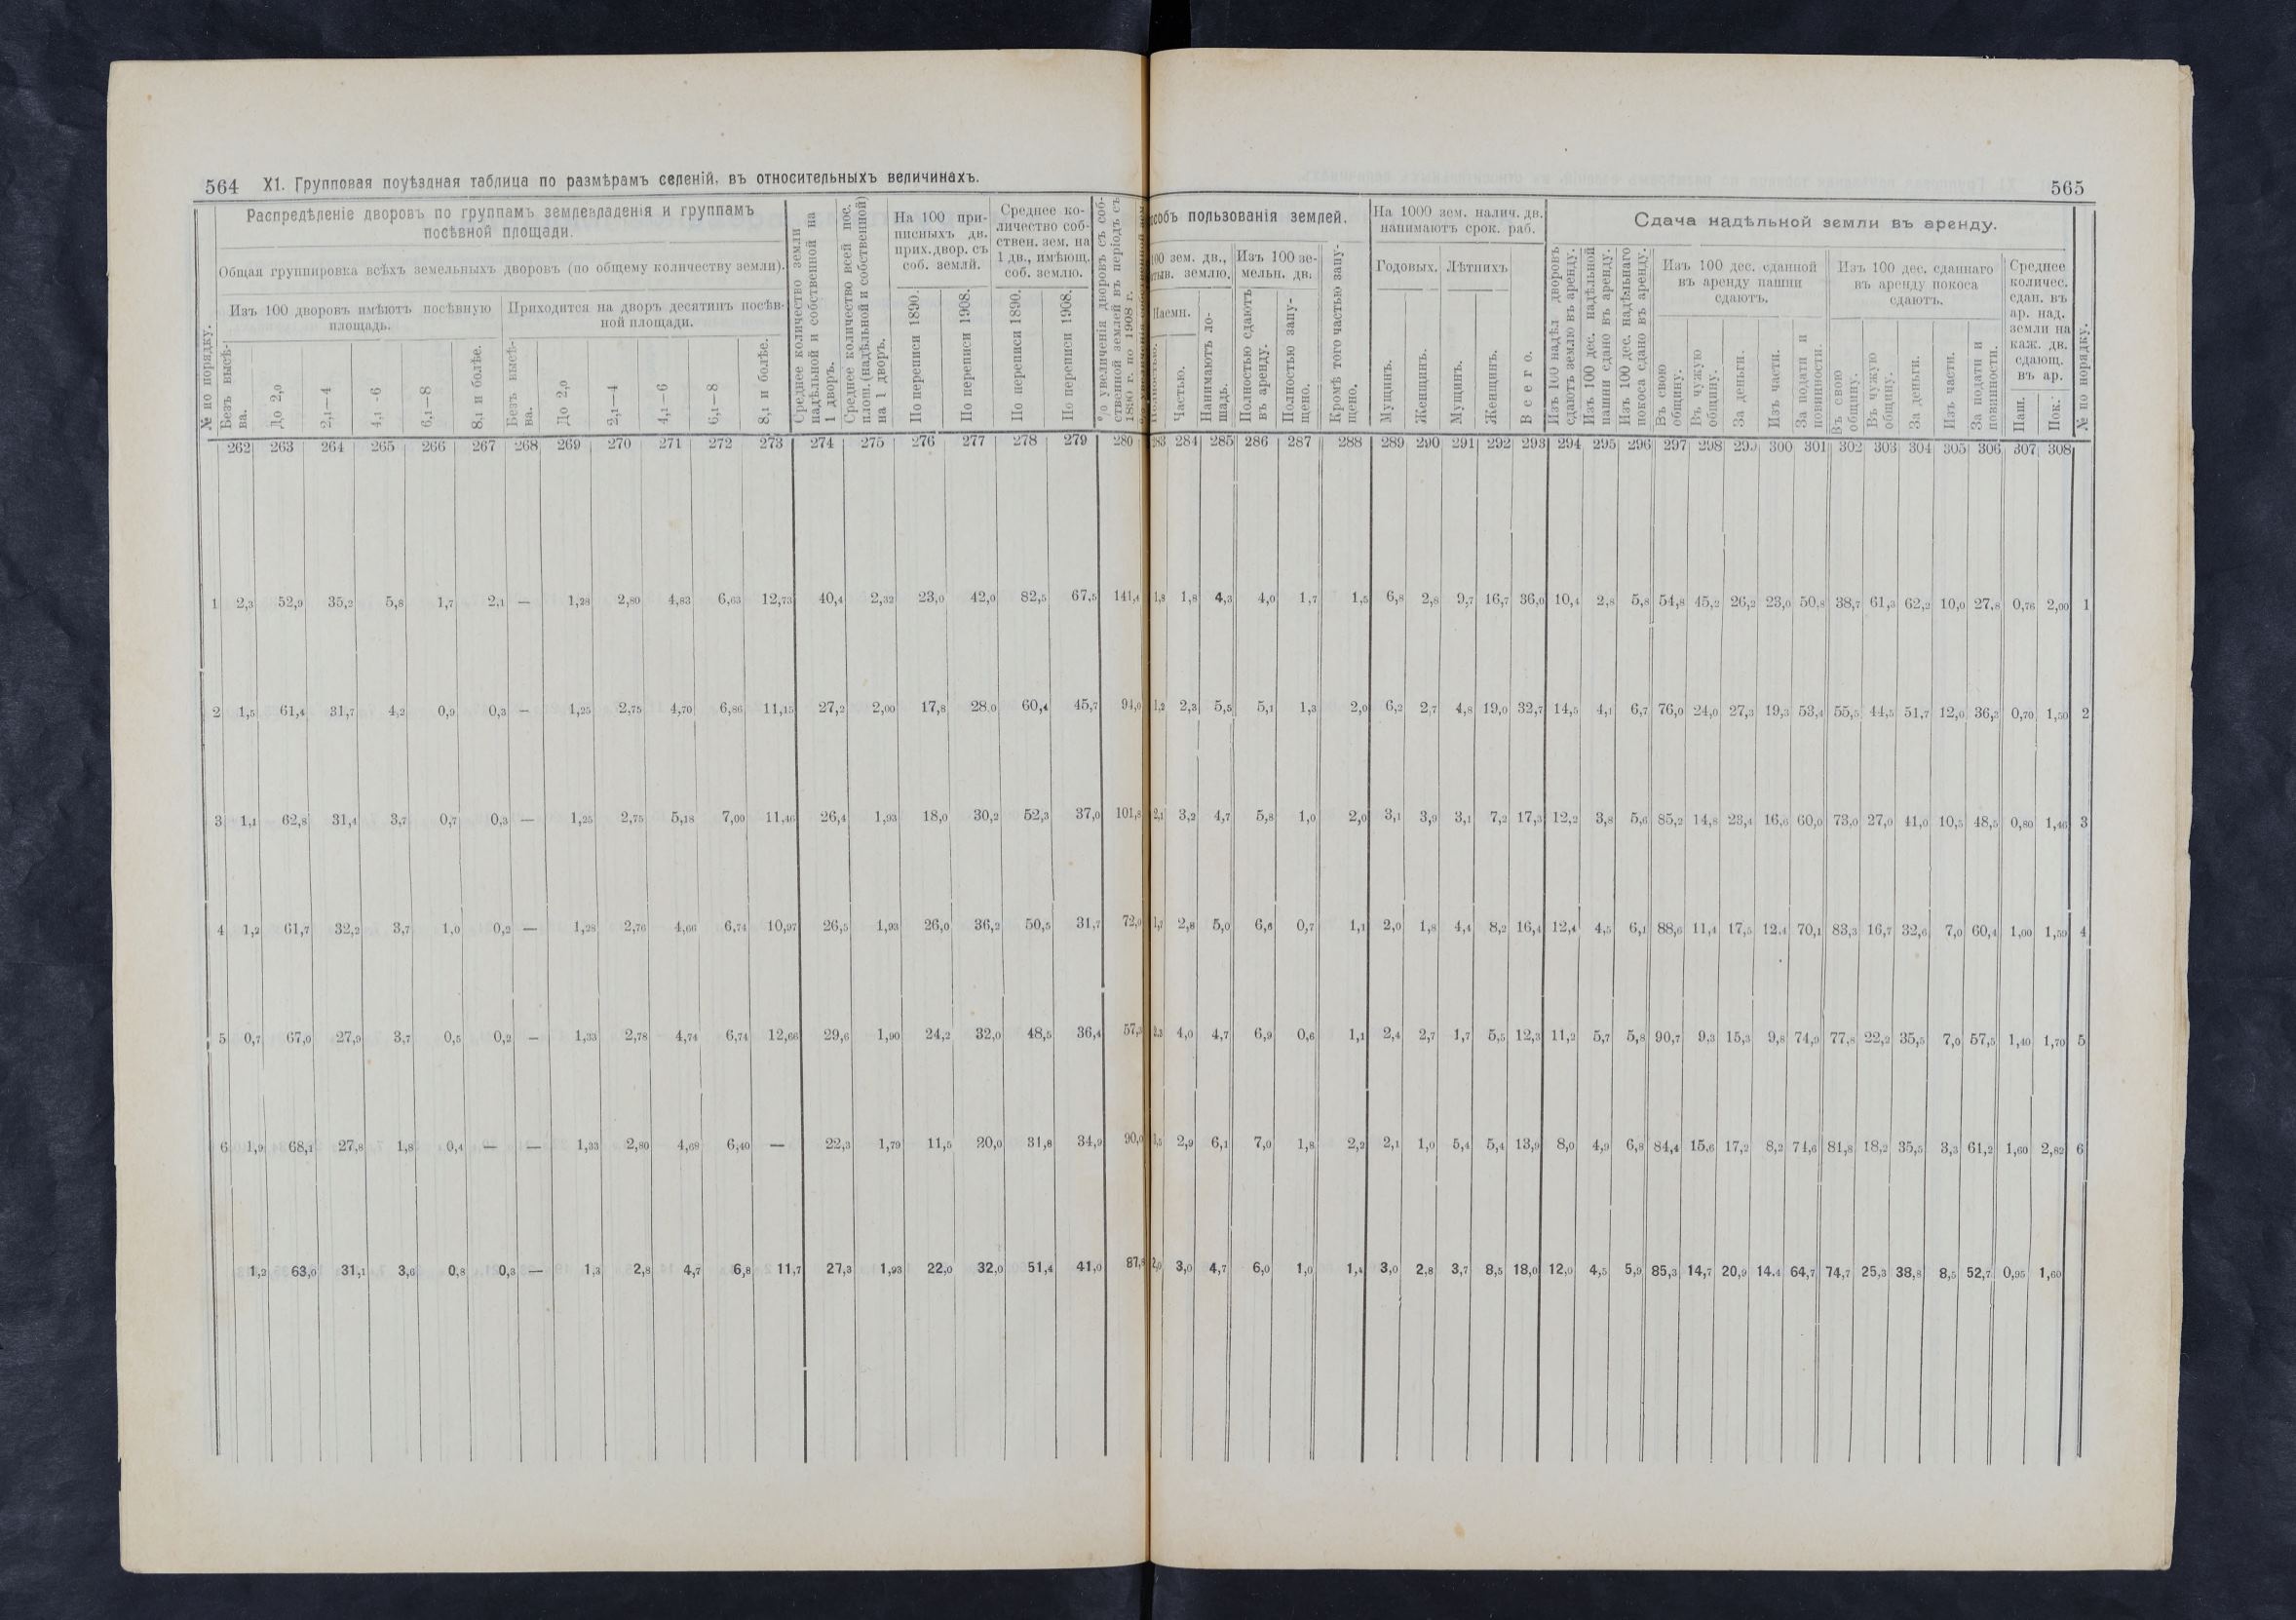 564 XI. Групповая поуѣздная таблица по размѣрамъ селеній, въ относительныхъ величинахъ.
Распредѣленіе дворовъ по группамъ землевладенія и группамъ
посѣвной площади.
Общая группировка всѣхъ земельныхъ дворовъ (по общему количеству земли).
Изъ 100 дворовъ имѣютъ посѣвную
площадь.
Приходится на дворъ десятинъ посѣв-
ной площади.
№ по порядку.
Безъ высѣ-
ва.
До 2,0
2,1—4
4,1 - 6
6,1—8
8,1 и болѣе.
Безъ высѣ-
ва.
До 2,0
2,1—4
4,1—6
6,1—8
8,1 и болѣе.
Среднее количество земли
надѣльной и собственной на
1 дворъ.
Среднее количество всей пос.
площ. (надѣльной и собственной)
на 1 дворъ.
На 100 при-
писныхъ дв.
прих. двор. съ
соб. землй.
По переписи 1890.
По переписи 1908.
Среднее ко-
личество соб-
ствен. зем. на
1 дв., имѣющ.
соб. землю.
По переписи 1890.
По переписи 1908.
% увеличенія дворовъ съ соб-
ственной землей въ періодъ съ
1890 г. по 1908 г.
262 263 264 265 266 267 268 269 270 271 272 273 274 275 276 277 278 279 280
1 2,3 52,9 35,2 5,8 1,7 2,1 — 1,28 2,80 4,83 6,63 12,73 40,4 2,32 23,0 42,0 82,5 67,5 141,4
2 1,5 61,4 31,7 4,2 0,9 0,3 — 1,25 2,75 4,70 6,86 11,15 27,2 2,00 17,8 28,0 60,4 45,7 94,0
3 1,1 62,8 31,4 3,7 0,7 0,3 — 1,25 2,75 5,18 7,00 11,46 26,4 1,93 18,0 30,2 52,3 37,0 101,8
4 1,2 61,7 32,2 3,7 1,0 0,2 — 1,28 2,76 4,66 6,74 10,97 26,5 1,93 26,0 36,2 50,5 31,7 72,0
5 0,7 67,0 27,9 3,7 0,5 0,2 — 1,33 2,78 4,74 6,74 12,66 29,6 1,90 24,2 32,0 48,5 36,4 57,3
6 1,9 68,1 27,8 1,8 0,4 — — 1,33 2,80 4,68 6,40 — 22,3 1,79 11,5 20,0 31,8 34,9 90,0
1,2 63,0 31,1 3,6 0,8 0,3 — 1,3 2,8 4,7 6,8 11,7 27,3 1,93 22,0 32,0 51,4 41,0 87,8
565
собъ пользованія землей.
100 зем. дв.,
землю.
Наемн.
Частью.
Нанимаютъ ло-
шадь.
Изъ 100 зе-
мельн. дв.
Полностью сдаютъ
въ аренду.
Полностью запу-
щено.
Кромѣ того частью запу-
щено.
На 1000 зем. налич. дв.
нанимаютъ срок. раб.
Годовыхъ. Лѣтнихъ
Мущинъ.
Женщинъ.
Мущинъ.
Женщинъ.
Всего.
Сдача надѣльной земли въ аренду.
Изъ 100 надѣл дворовъ
сдаютъ землю въ аренду.
Изъ 100 дес. надѣльной
пашни сдано въ аренду.
Изъ 100 дес. надѣльнаго
покоса сдано въ аренду.
Изъ 100 дес. сданной
въ аренду пашни
сдаютъ.
Въ свою
общину.
Въ чужую
общину.
За деньги.
Изъ части.
За подати и
повинности.
Изъ 100 дес. сданнаго
въ аренду покоса
сдаютъ.
Въ свою
общину.
Въ чужую
общину.
За деньги.
Изъ части.
За подати и
повинности.
Среднее
количес.
сдан. въ
ар. над.
земли на
каж. дв.
сдающ.
въ ар.
Паш.
Пок.
№ по порядку.
283 284 285 286 287 288 289 290 291 292 293 294 295 296 297 298 299 300 301 302 303 304 305 306 307 308
1,8 1,8 4,3 4,0 1,7 1,5 6,8 2,8 9,7 16,7 36,0 10,4 2,8 5,8 54,8 45,2 26,2 23,0 50,8 38,7 61,3 62,2 10,0 27,8 0,76 2,00 1
1,2 2,3 5,5 5,1 1,3 2,0 6,2 2,7 4,8 19,0 32,7 14,5 4,1 6,7 76,0 24,0 27,3 19,3 53,4 55,5 44,5 51,7 12,0 36,3 0,70 1,50 2
2,1 3,2 4,7 5,8 1,0 2,0 3,1 3,9 3,1 7,2 17,3 12,2 3,8 5,6 85,2 14,8 23,4 16,6 60,0 73,0 27,0 41,0 10,5 48,5 0,80 1,46 3
1,7 2,8 5,0 6,6 0,7 1,1 2,0 1,8 4,4 8,2 16,4 12,4 4,5 6,1 88,6 11,4 17,5 12,4 70,1 83,3 16,7 32,6 7,0 60,4 1,00 1,59 4
2,3 4,0 4,7 6,9 0,6 1,1 2,4 2,7 1,7 5,5 12,3 11,2 5,7 5,8 90,7 9,3 15,3 9,8 74,9 77,8 22,2 35,5 7,0 57,5 1,40 1,70 5
2,9 6,1 7,0 1,8 2,2 2,1 1,0 5,4 5,4 13,9 8,0 4,9 6,8 84,4 15,6 17,2 8,2 74,6 81,8 18,2 35,5 3,3 61,2 1,60 2,82 6
2,0 3,0 4,7 6,0 1,0 1,4 3,0 2,8 3,7 8,5 18,0 12,0 4,5 5,9 85,3 14,7 20,9 14,4 64,7 74,7 25,3 38,8 8,5 52,7 0,95 1,60